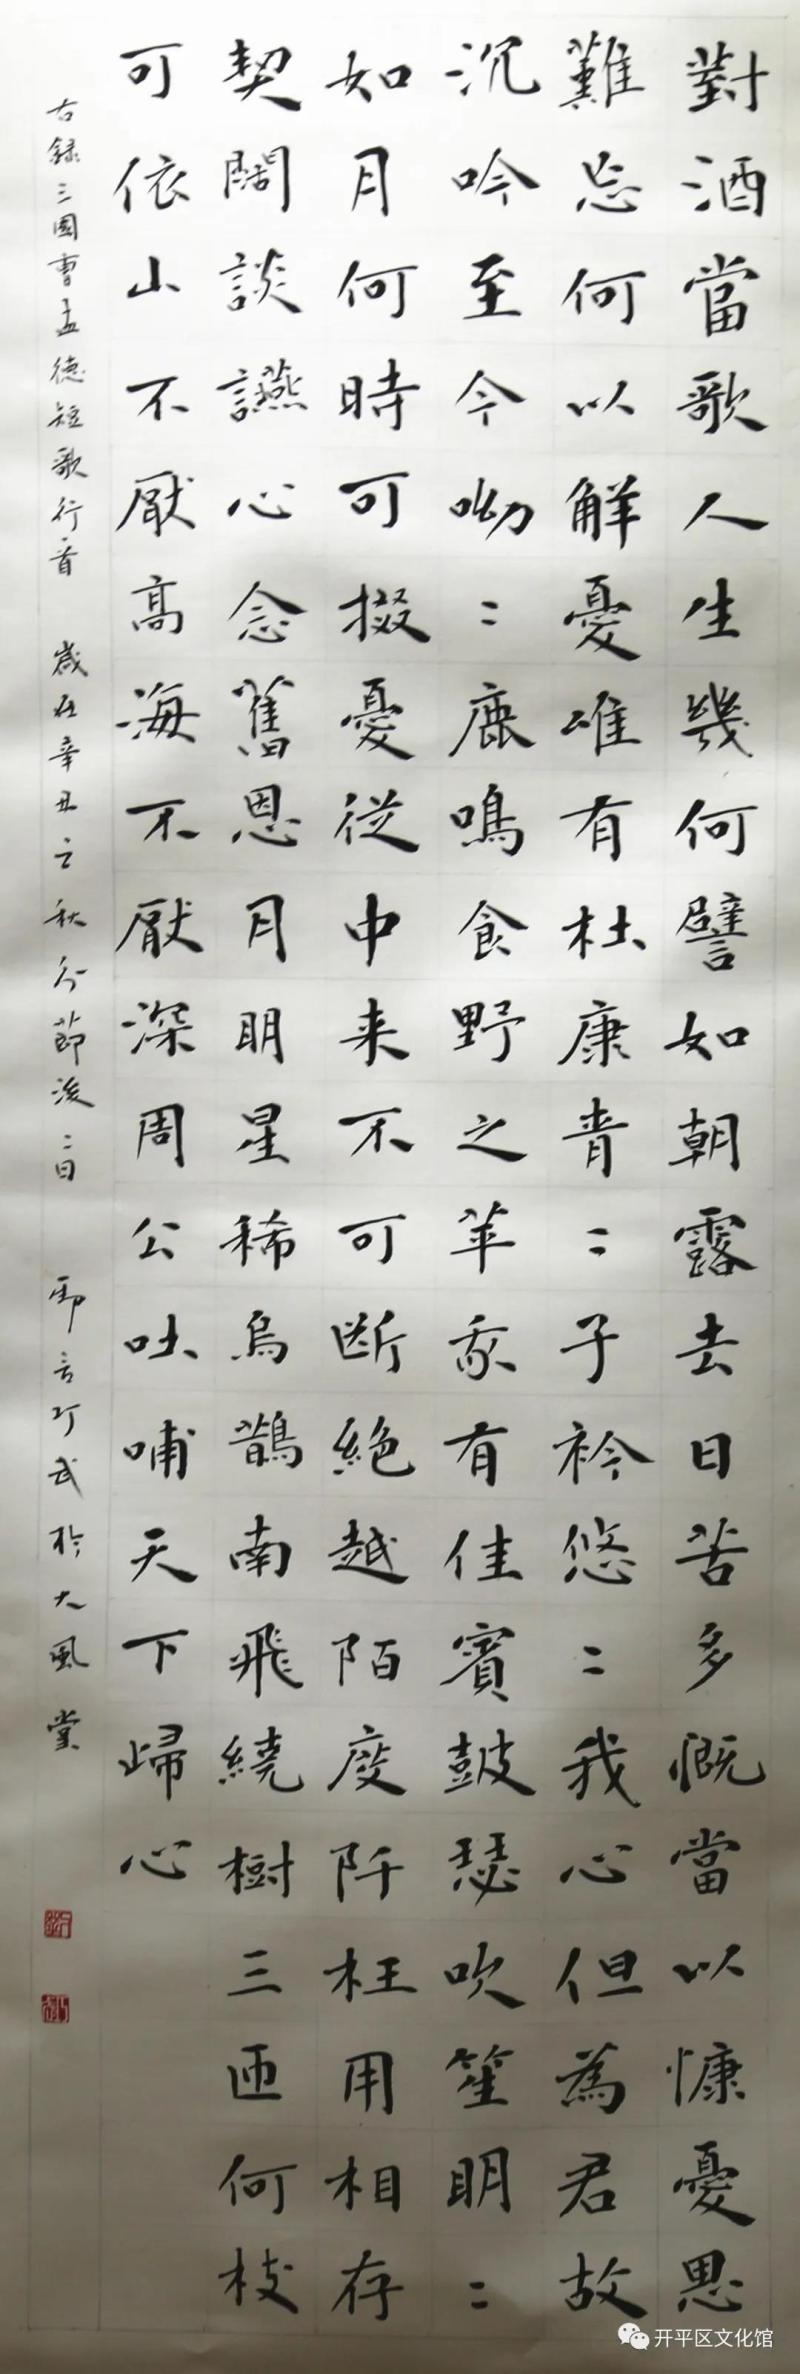 對酒當歌人生幾何譬如朝露去日苦多慨當以慷憂思
難忘何以解憂唯有杜康青〻子衿悠〻我心但為君故
沉吟至今呦〻鹿鳴食野之苹我有佳賓鼓瑟吹笙明〻
如月何時可掇憂從中来不可断絶越陌度阡枉用相存
契闊談讌心念舊恩月明星稀烏鵲南飛繞樹三匝何枝
可依山不厭高海不厭深周公吐哺天下歸心
右録三國曹孟德短歌行一首 歲在辛丑之秋分節後二日 於大風堂
开平区文化馆